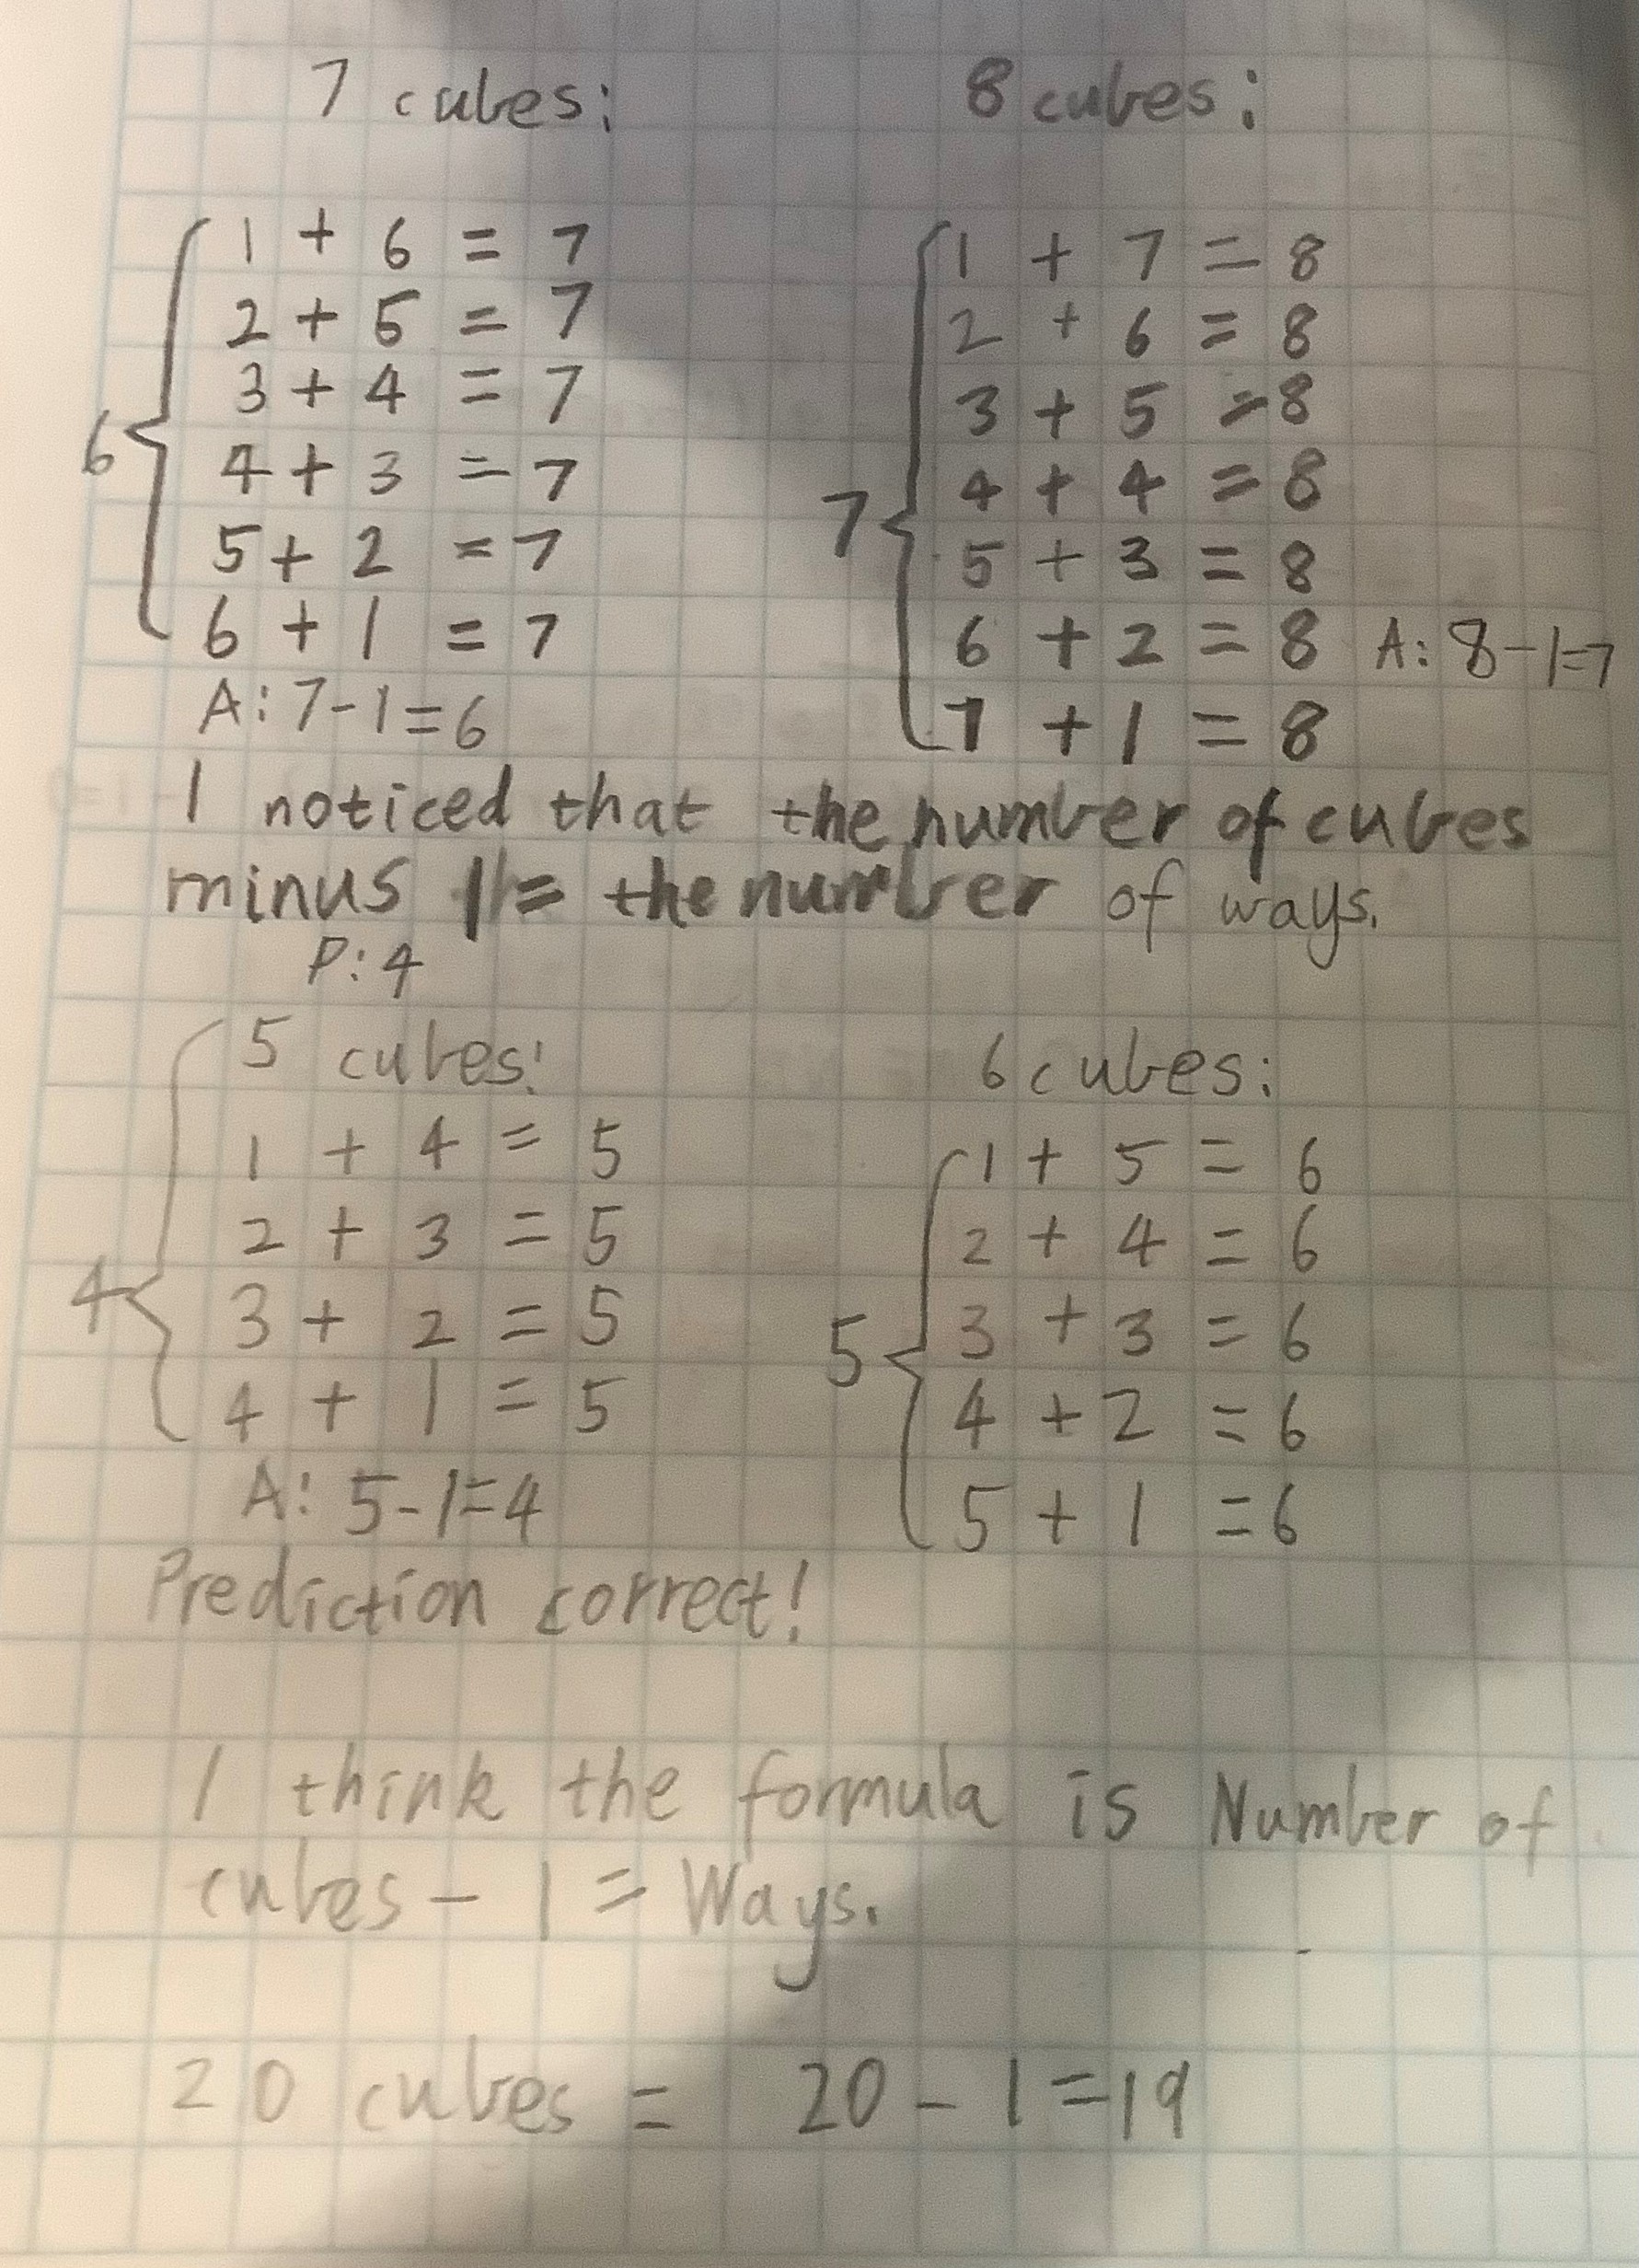 7 cubes:
1 + 6 = 7
2 + 5 = 7
3 + 4 = 7
6
4 + 3 = 7
5 + 2 = 7
6 + 1 = 7
A: 7 - 1 = 6
8 cubes:
1 + 7 = 8
2 + 6 = 8
3 + 5 = 8
4 + 4 = 8
7
5 + 3 = 8
6 + 2 = 8 A: 8 - 1 = 7
7 + 1 = 8
I noticed that the number of cubes
minus 1 = the number of ways.
P: 4
5 cubes:
1 + 4 = 5
2 + 3 = 5
4
3 + 2 = 5
4 + 1 = 5
A: 5 - 1 = 4
Prediction correct!
6 cubes:
1 + 5 = 6
2 + 4 = 6
3 + 3 = 6
5
4 + 2 = 6
5 + 1 = 6
I think the formula is Number of
cubes - 1 = Ways.
20 cubes = 20 - 1 = 19